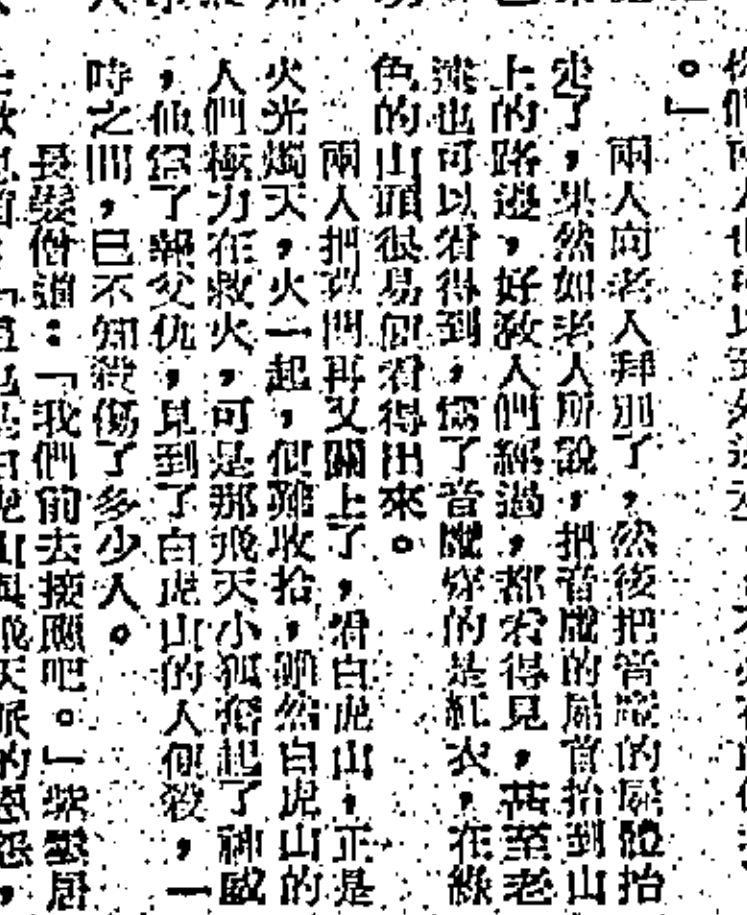 。」
兩人向老人拜別了，然後把音啟的屍體抬
走了，果然如老人所說，把音啟的屍首抬到山
上的路邊，好教人們經過，都看得見，甚至老
遠也可以看得到，為了音啟穿的是紅衣，在綠
色的山頭很易便看得出來。
兩人把門再又關上了，看白虎山，正是
火光燭天，火一起，便難收拾，雖然白虎山的
人們極力在救火，可是那飛天小狐奮起了神威
，他為了報父仇，見到了白虎山的人便殺，一
時之間，已不知殺傷了多少人。
長髮僧道：「我們前去接應吧。」紫雲居